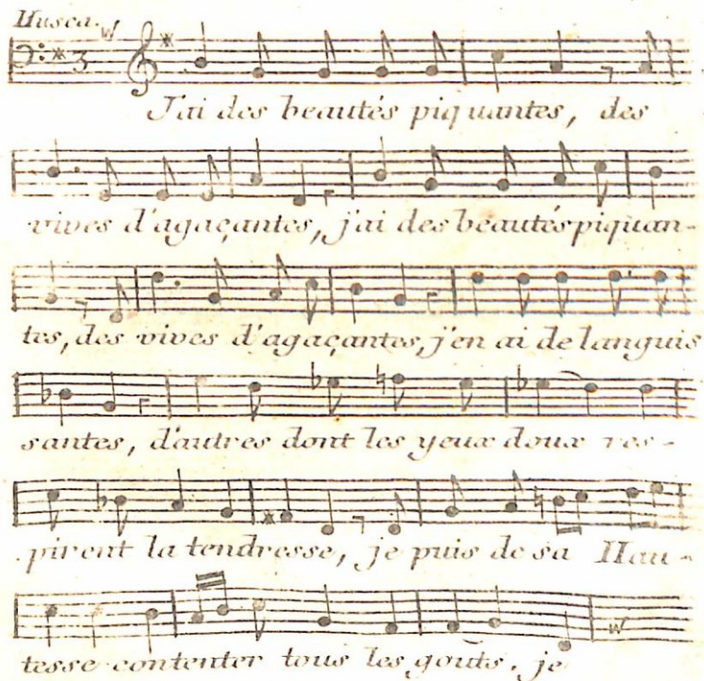 Husca.
3
J'ai des beautés piquantes, des
vives d'agaçantes, j'ai des beautés piquan-
tes, des vives d'agaçantes, j'en ai de languis
santes, d'autres dont les yeux doux res-
pirent la tendresse, je puis de sa Hau-
tesse contenter tous les goûts. je